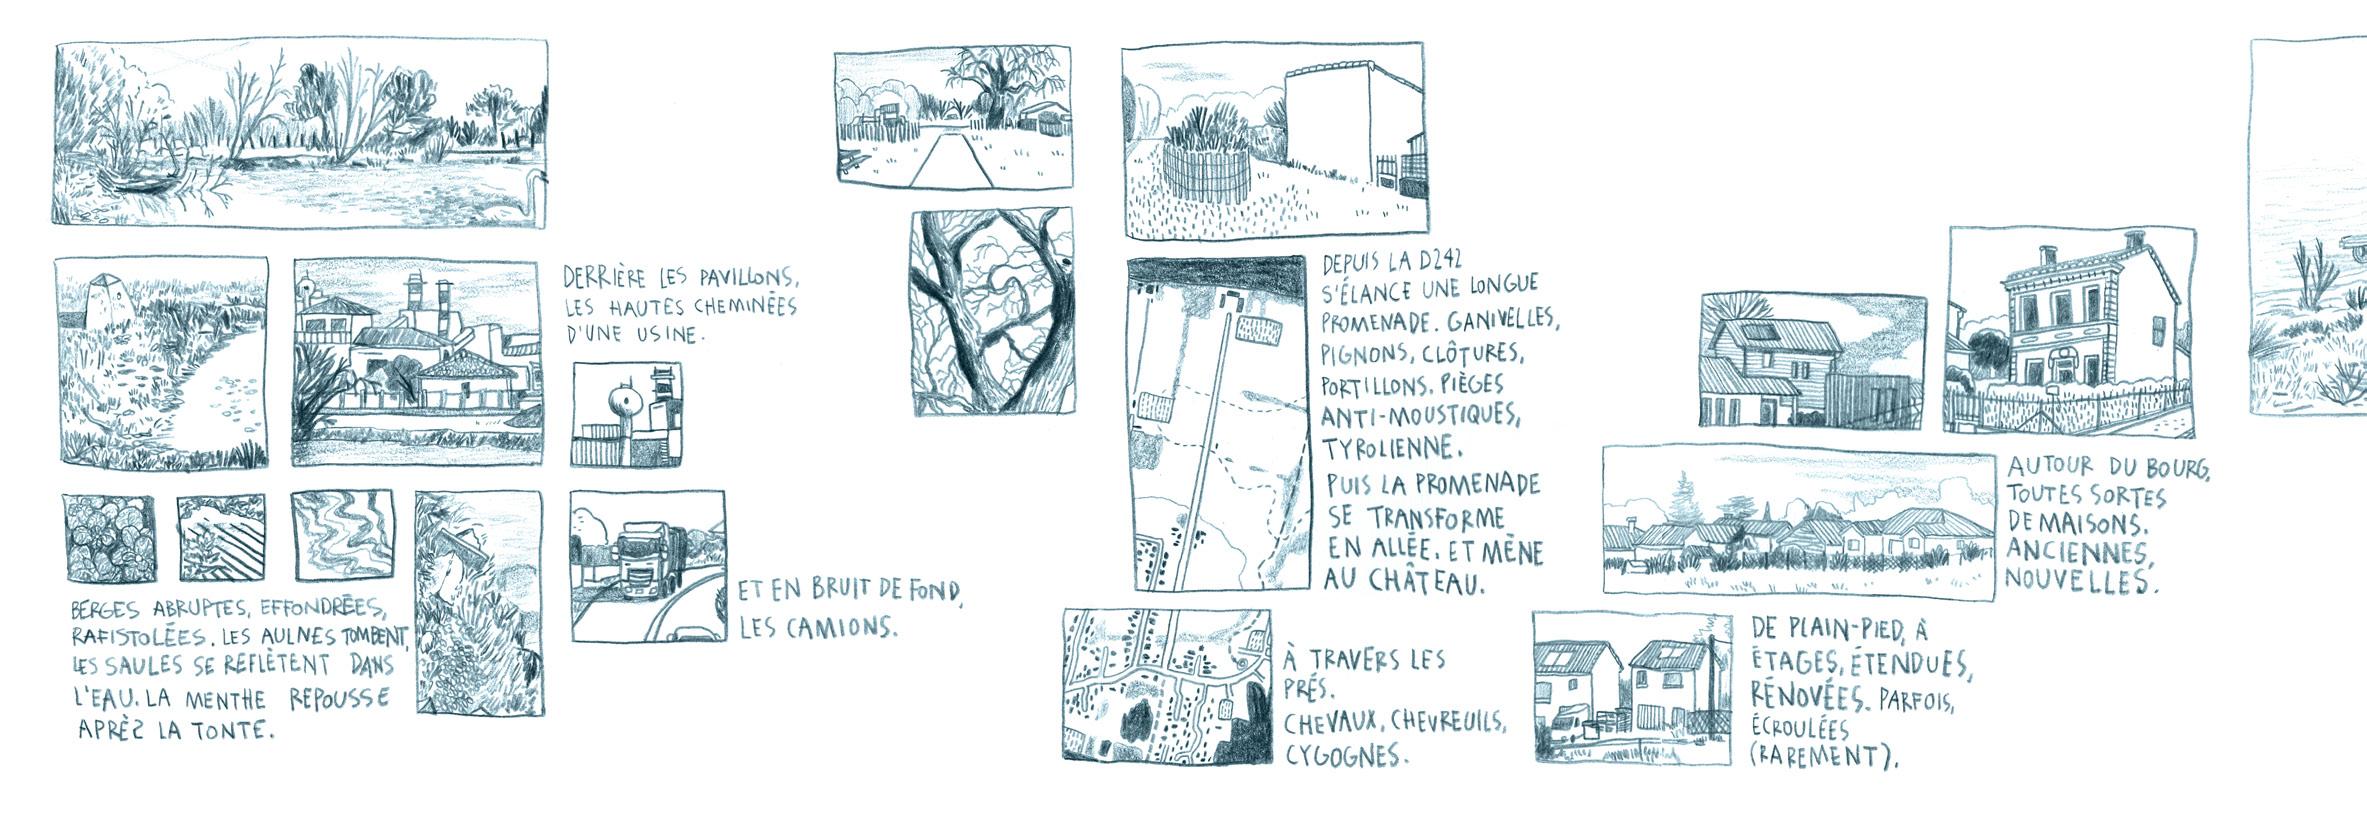 DERRIÈRE LES PAVILLONS,
LES HAUTES CHEMINÉES
D'UNE USINE.
BERGES ABRUPTES, EFFONDRÉES,
RAFISTOLÉES. LES AULNES TOMBENT,
LES SAULES SE REFLÈTENT DANS
L'EAU. LA MENTHE REPOUSSE
APRÈS LA TONTE.
ET EN BRUIT DE FOND,
LES CAMIONS.
DEPUIS LA D242
S'ÉLANCE UNE LONGUE
PROMENADE. GANIVELLES,
PIGNONS, CLÔTURES,
PORTILLONS. PIÈGES
ANTI-MOUSTIQUES,
TYROLIENNE.
PUIS LA PROMENADE
SE TRANSFORME
EN ALLÉE. ET MÈNE
AU CHÂTEAU.
À TRAVERS LES
PRÉS.
CHEVAUX, CHEVREUILS,
CYGOGNES.
AUTOUR DU BOURG,
TOUTES SORTES
DE MAISONS.
ANCIENNES,
NOUVELLES.
DE PLAIN-PIED, À
ÉTAGES, ÉTENDUES,
RÉNOVÉES. PARFOIS,
ÉCROULÉES
(RAREMENT).